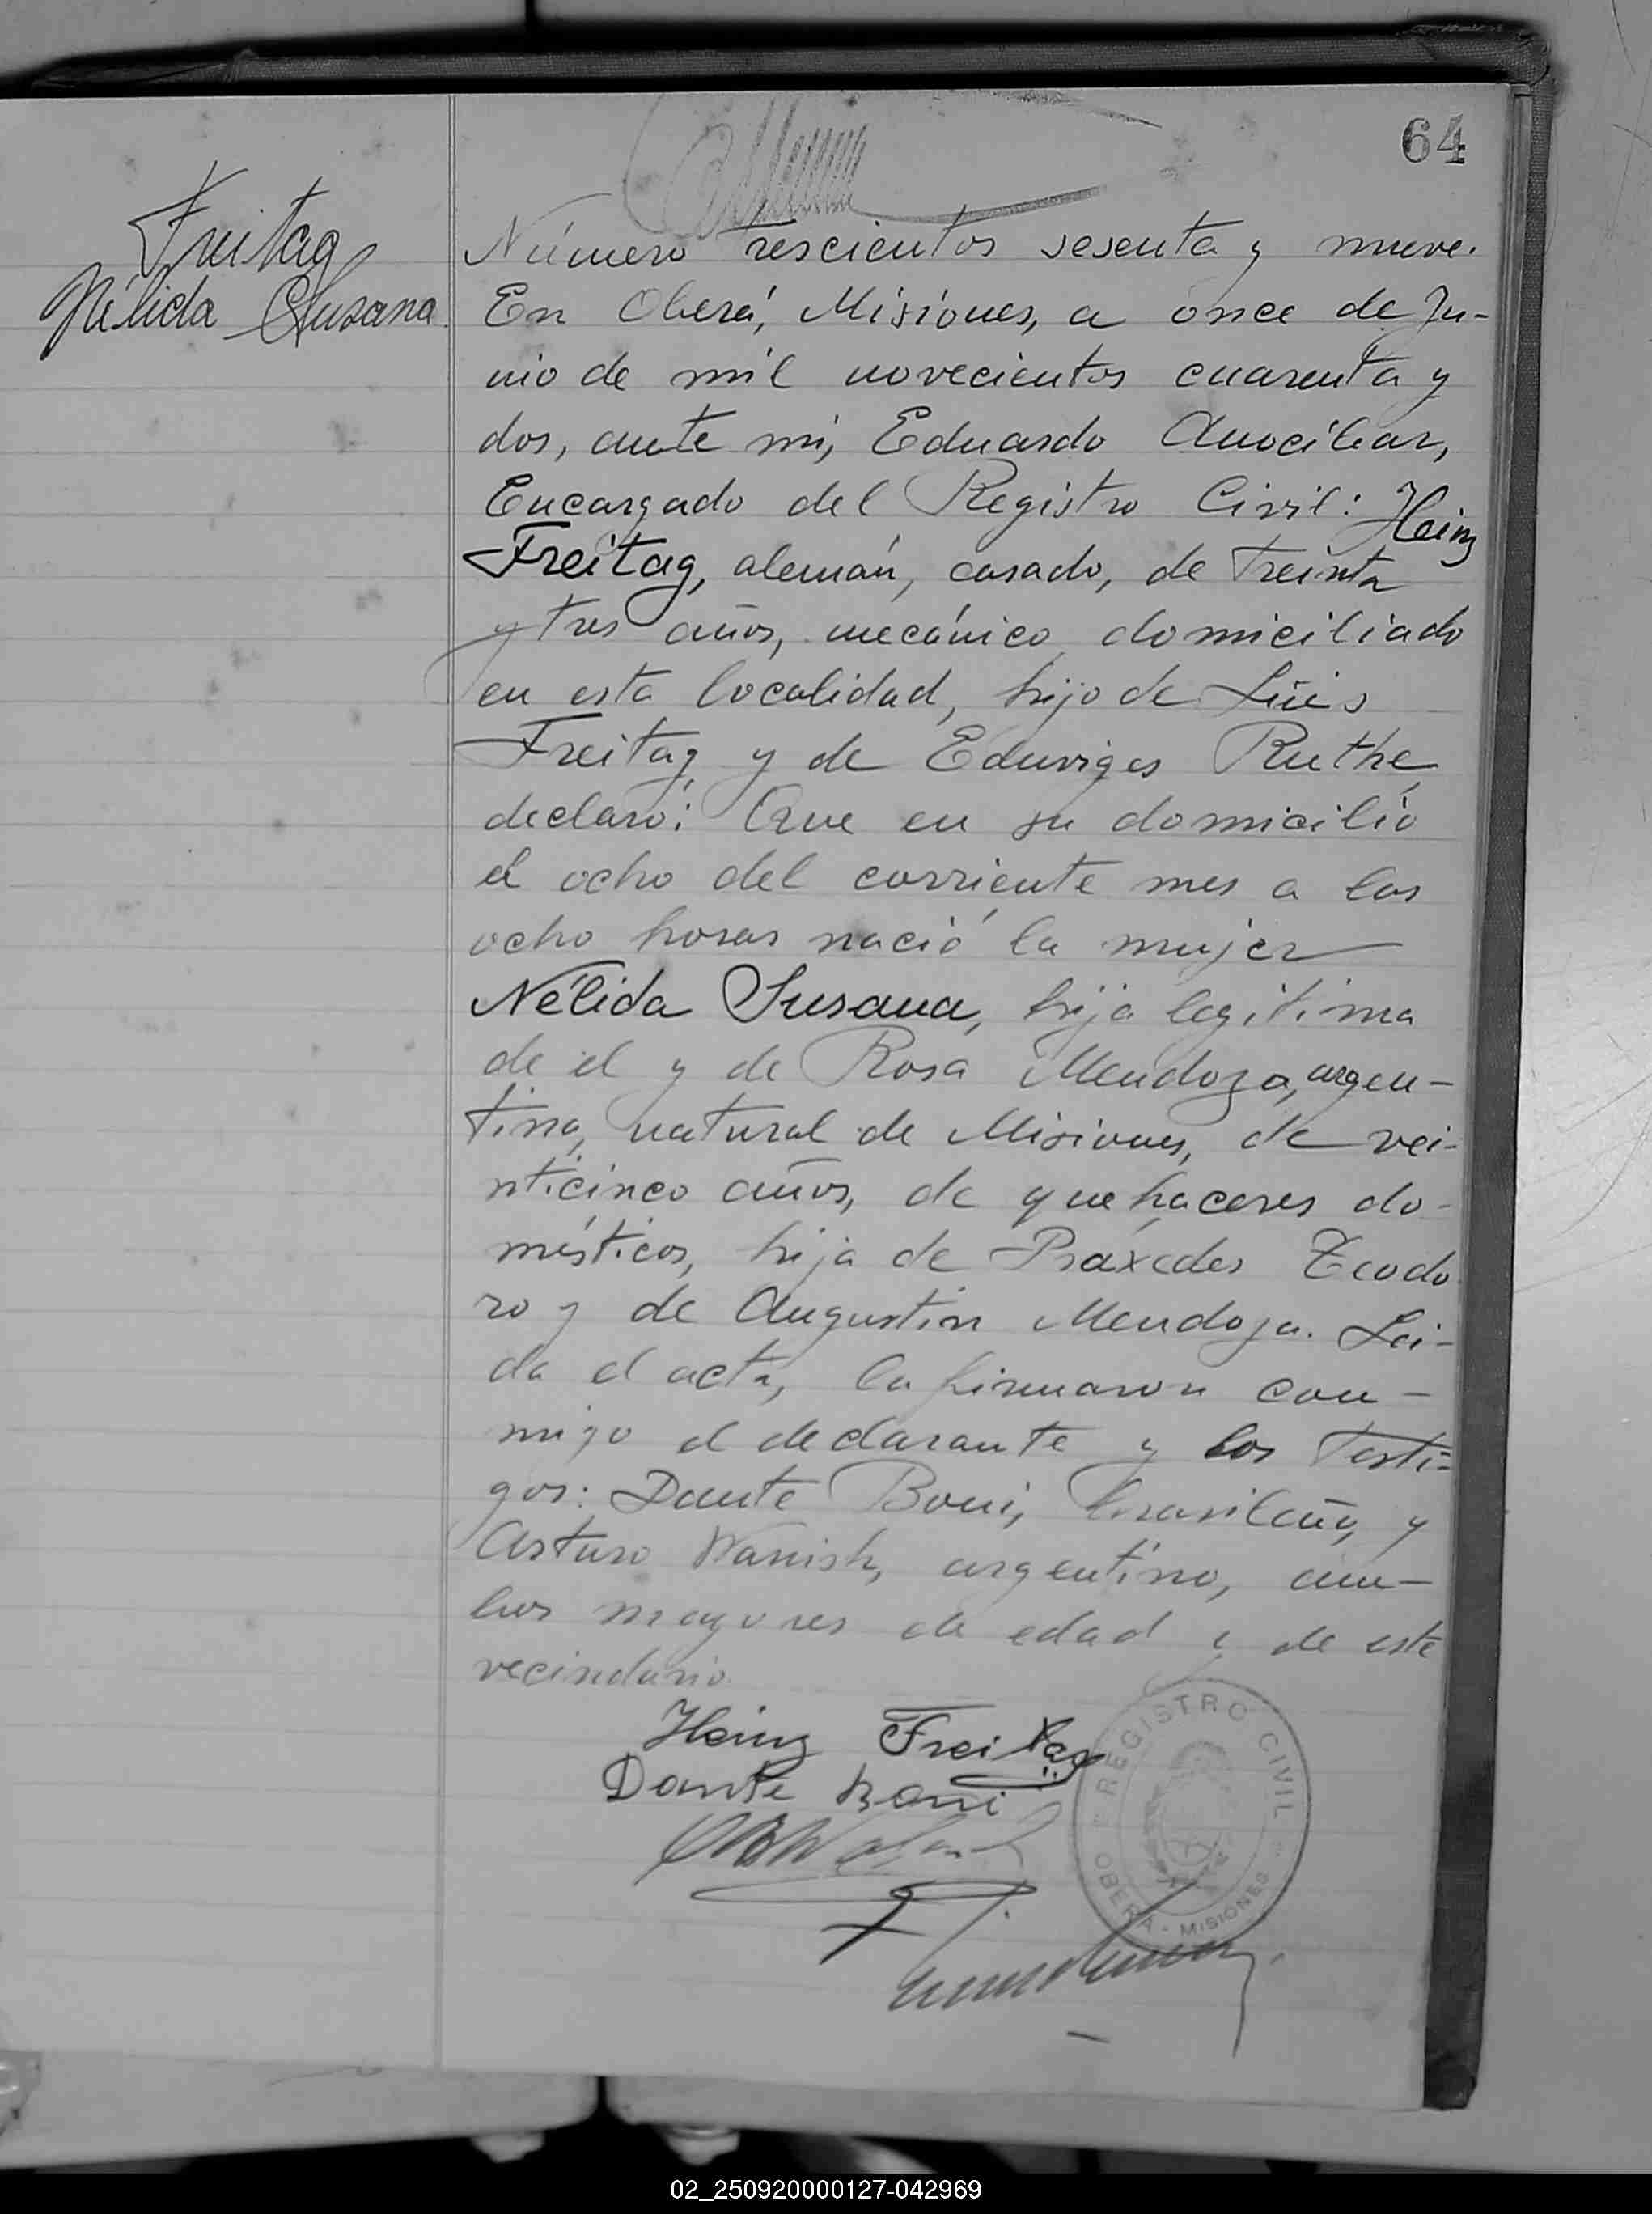 64
Freitag
Nélida Susana
Número trescientos sesenta y nueve.
En Oberá, Misiones, a once de Ju-
nio de mil novecientos cuarenta y
dos, ante mi, Eduardo Anocibar,
Encargado del Registro Civil: Heinz
Freitag, alemán, casado, de treinta
y tres años, mecánico, domiciliado
en esta localidad, hijo de Luis
Freitag y de Eduviges Ruthe,
declaró: Que en su domicilio
el ocho del corriente mes a las
ocho horas nació la mujer
Nélida Susana, hija legitima
de el y de Rosa Mendoza, argen-
tina, natural de Misiones, de vei-
nticinco años, de quehaceres do-
mésticos, hija de Práxedes Teodo
ro y de Augustin Mendoza. Lei-
da el acta, la firmaron con-
migo el declarante y los testi-
gos: Dante Boni, brasileño, y
Arturo Wanish, argentino, am-
bos mayores de edad i de este
vecindario.
Heinz Freitag
Dante Boni
REGISTRO CIVIL
OBERÁ - MISIONES
02_250920000127-042969